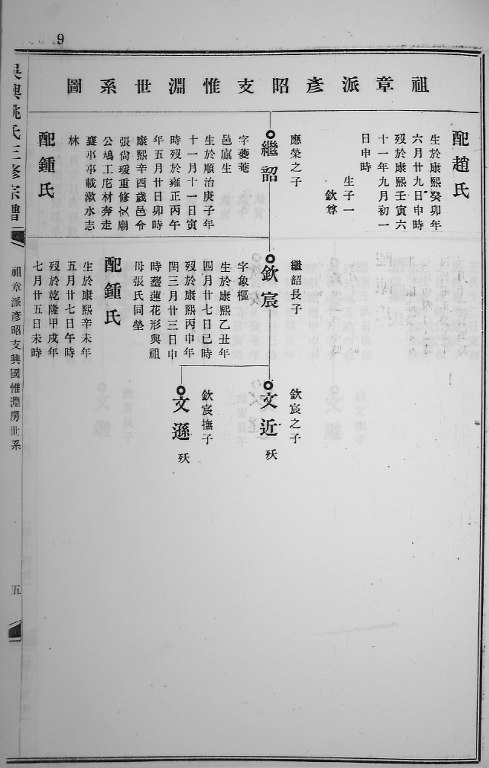 9
祖章派彥昭支惟淵世系圖
配趙氏
生於康熙癸卯年
六月廿九日申時
歿於康熙壬寅六
十一年九月初一
日申時
生子一
欽尊
應榮之子
繼韶
字夔菴
邑庠生
生於順治庚子年
十一月十一日寅
時歿於雍正丙午
年五月廿日卯時
康熙辛酉歲邑令
張尚瑗重修文廟
公鳩工庀材奔走
襄事事載瀲水志
林
配鍾氏
繼韶長子
欽宸
字象樞
生於康熙乙丑年
四月廿七日巳時
歿於康熙丙申年
閏三月廿三日申
時塟蓮花形與祖
母張氏同塋
配鍾氏
生於康熙辛未年
五月廿七日午時
歿於乾隆甲戌年
七月廿五日未時
欽宸之子
文近 殀
欽宸撫子
文遜 殀
吳興姚氏三修宗譜
祖章派彥昭支興國惟淵房世系
五